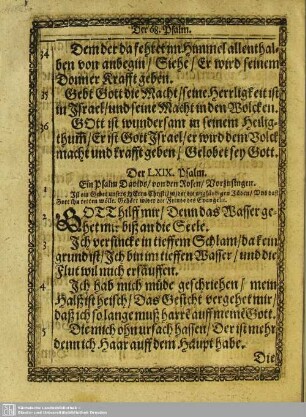 Der 68. Psalm.
34 Dem der da fehret im Himmel allenthal-
ben von anbegin / Siehe / Er wird seinem
Donner Krafft geben.
35 Gebt Gott die Macht / seine Herrligkeit ist
in Israel / und seine Macht in den Wolcken.
36 GOtt ist wundersam in seinem Heilig-
thum / Er ist Gott Israel / er wird dem Volck
macht und krafft geben / Gelobet sey Gott.
Der LXIX. Psalm.
1 Ein Psalm Davids / von den Rosen / Vorzusingen.
Ist ein Gebet
2 GOTT hilff mir / Denn das Wasser ge-
het mir biß an die Seele.
3 Ich versincke in tieffem Schlam / da kein
grund ist / Ich bin im tieffen Wasser / und die
Flut wil mich ersäuffen.
4 Ich hab mich müde geschrieben / mein
Halß ist heisch / Das Gesicht vergehet mir /
daß ich so lange muß harrē auff meinē Gott.
5 Die mich ohn ursach hassen / Der ist mehr
denn ich Haar auff dem Häupt habe.
Die